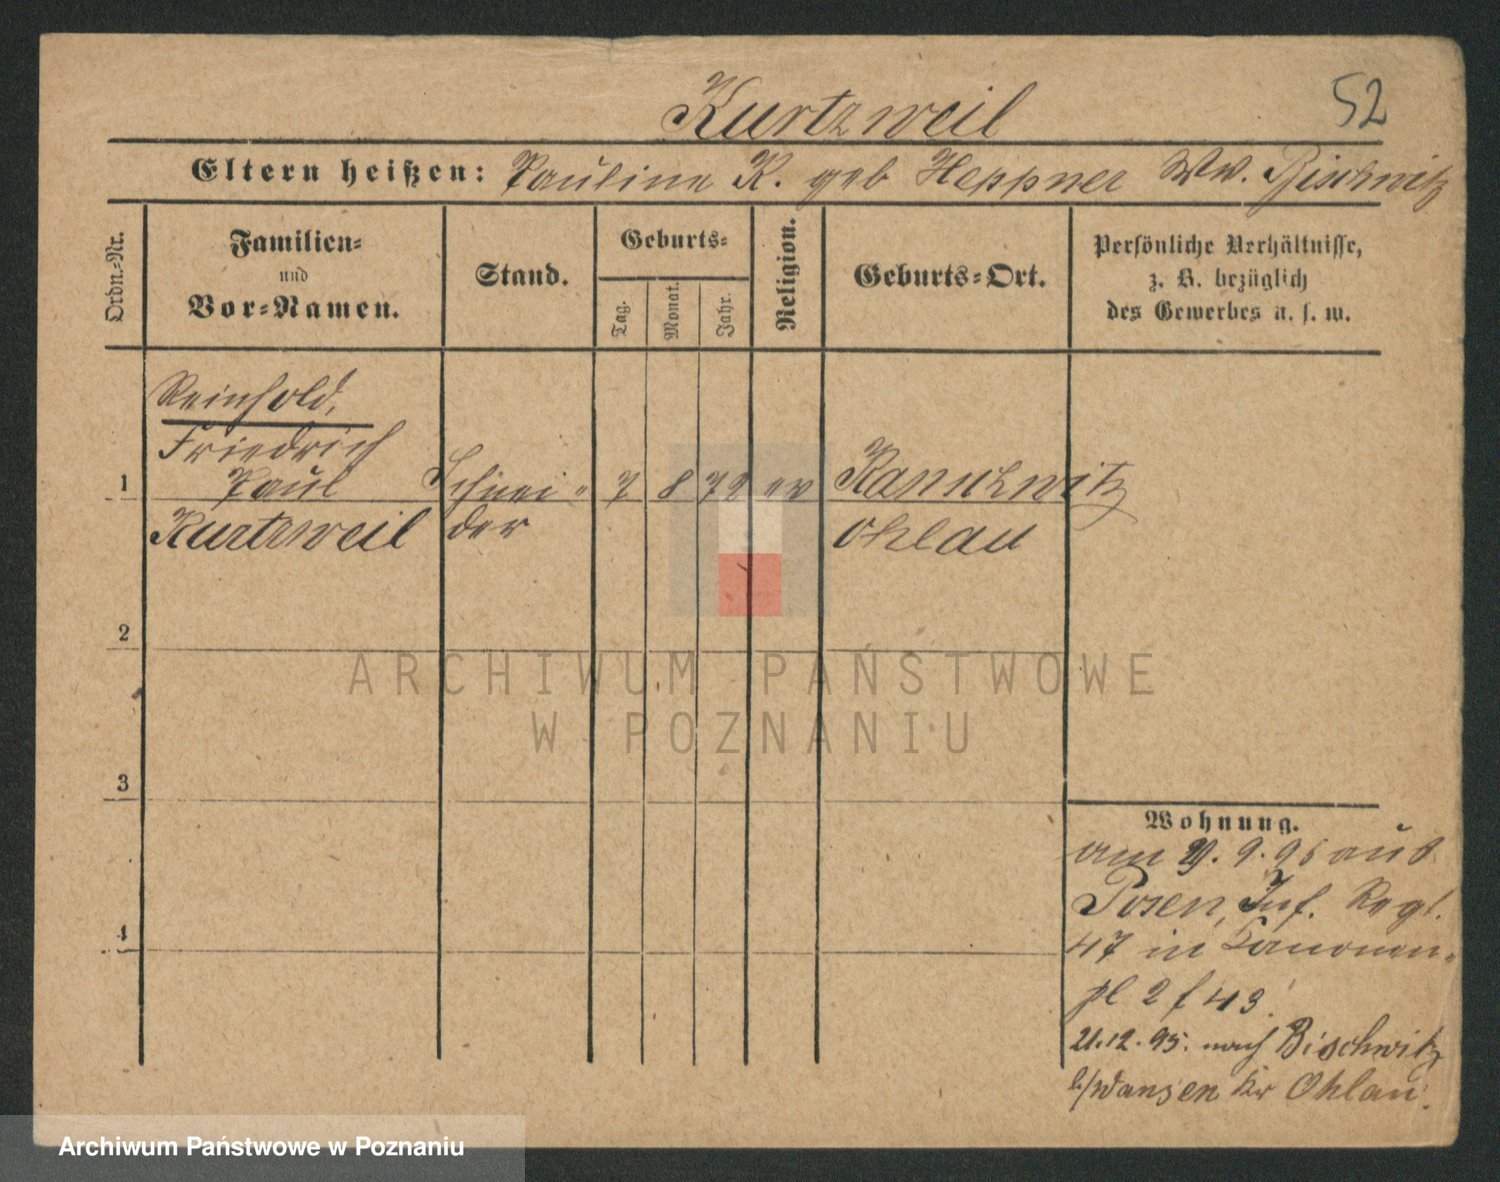 Kurtzweil
52
Eltern heißen: Pauline K. geb Heppner Ww. Bischwitz
Ordn.-Nr.
Familien-
und
Vor-Namen.
Stand.
Geburts-
Tag.
Monat.
Jahr.
Religion.
Geburts-Ort.
Persönliche Verhältnisse,
z. B. bezüglich
des Gewerbes u. s. w.
Reinhold,
Friedrich
1 Paul Schnei- 7 8 72 ev
Kurtzweil der Ohlau
2
3
4
Wohnung.
am 9. 95 aus
Posen, Inf. Regt.
47 in Kanonen-
pl 2 f 43!
21.12.95. nach Bischwitz
b/Wansen Kr Ohlau.
ARCHIWUM PAŃSTWOWE
W POZNANIU
Archiwum Państwowe w Poznaniu